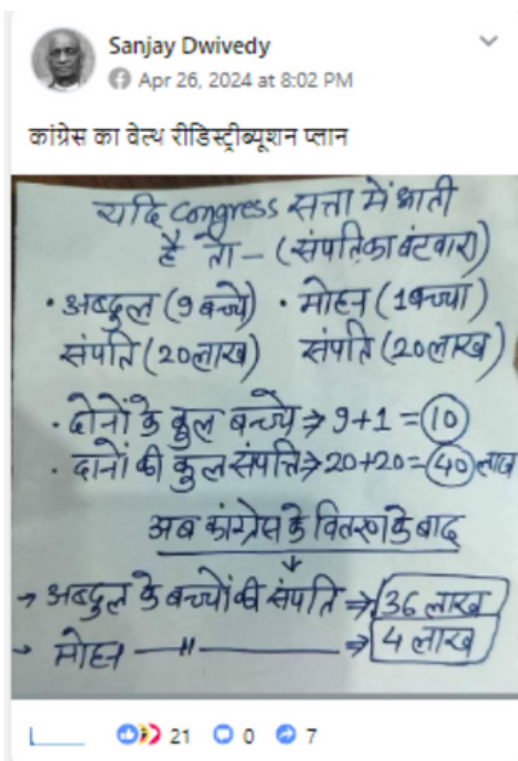 Sanjay Dwivedy
Apr 26, 2024 at 8:02 PM
कांग्रेस का वेल्थ रीडिस्ट्रीब्यूशन प्लान
यदि Congress सत्ता में आती
है तो - (संपतिका बंटवारा)
• अब्दुल (9 बच्चे) • मोहन (1 बच्चा)
संपति (20 लाख) संपति (20 लाख)
• दोनों के कुल बच्चे ⇒ 9+1 = 10
• दानों की कुल संपत्ति ⇒ 20+20 = 40 लाख
अब कांग्रेस के वितरण के बाद
↓
→ अब्दुल के बच्चों की संपति ⇒ 36 लाख
→ मोहन —〃— ⇒ 4 लाख
21 0 7